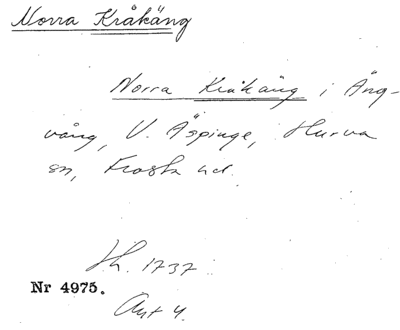 Norra Kråkäng
Norra Kråkäng i Äng-
vång, V. Äspinge, Hurva
sn, Frosta hd.
Lh. 1737.
Nr 4975.
Akt 4.